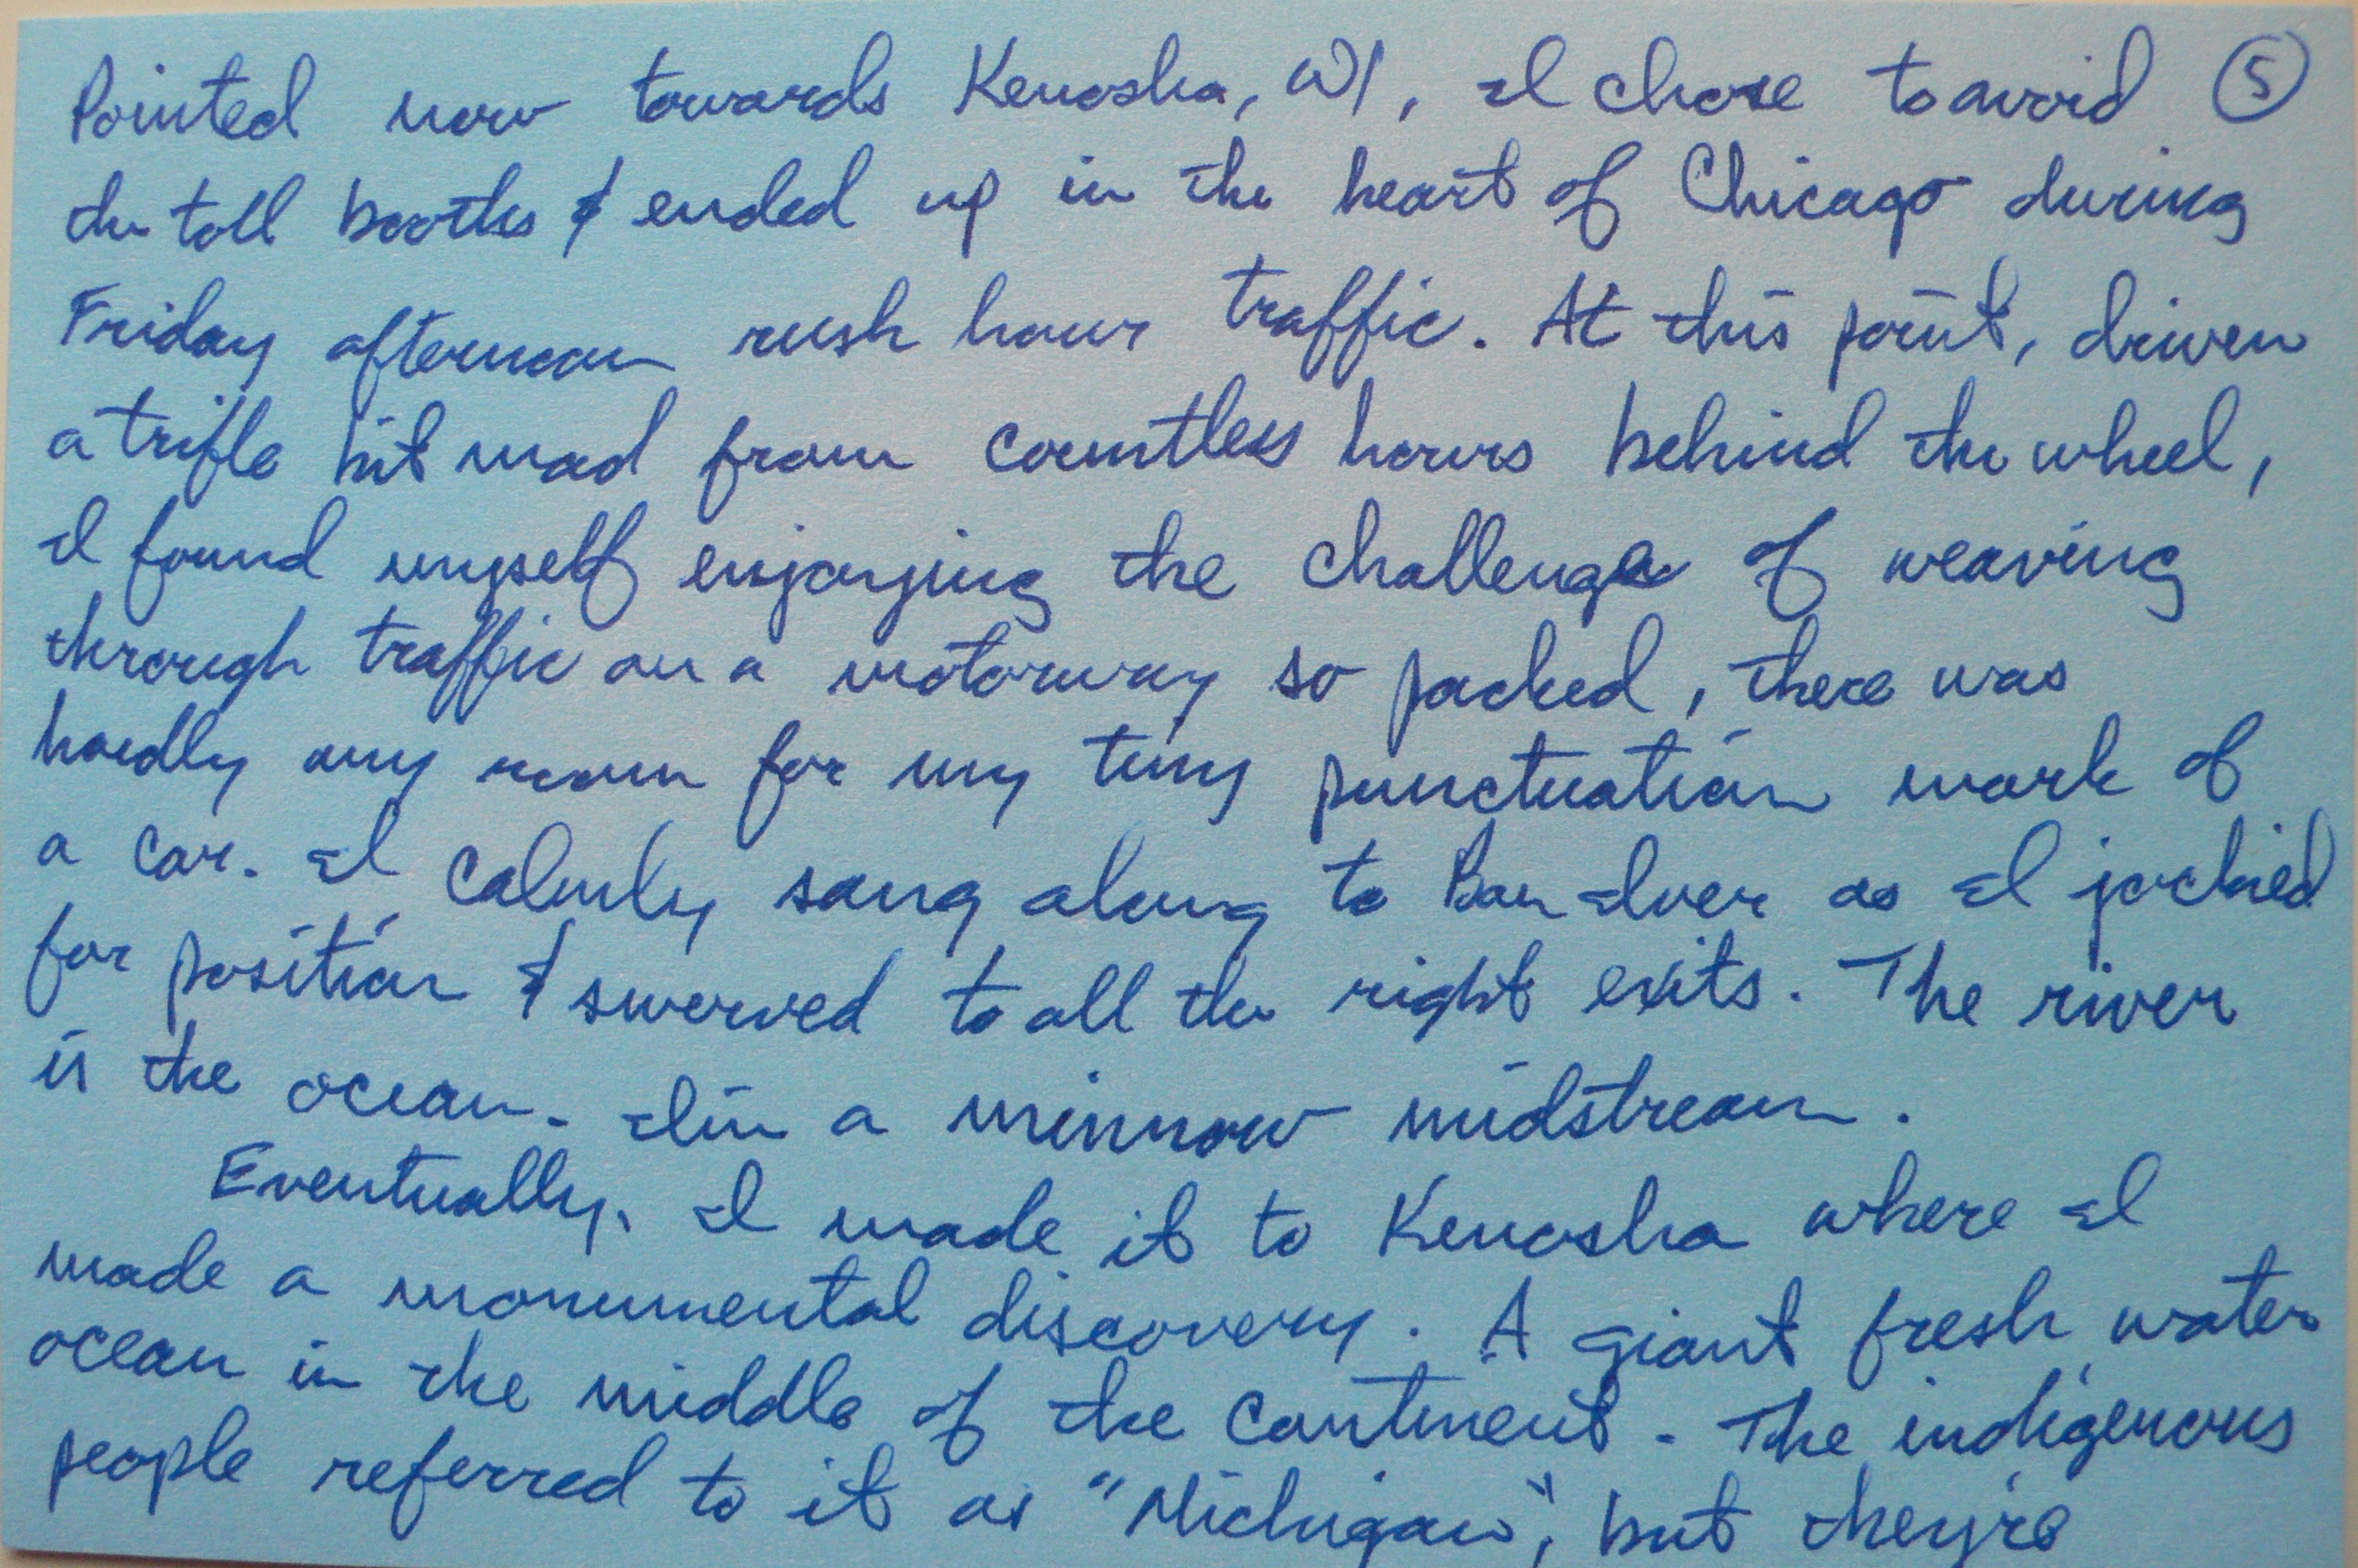 Pointed now towards Kenosha, WI, I chose to avoid ⑤
the toll booths & ended up in the heart of Chicago during
Friday afternoon rush hour traffic. At this point, driven
a trifle bit mad from countless hours behind the wheel,
I found myself enjoying the challenge of weaving
through traffic on a motorway so packed, there was
hardly any room for my tiny punctuation mark of
a car. I calmly sang along to Bon Iver as I jockied
for position & swerved to all the right exits. The river
is the ocean. I'm a minnow midstream.
Eventually, I made it to Kenosha where I
made a monumental discovery. A giant fresh water
ocean in the middle of the continent. The indigenous
people referred to it as "Michigan", but they're